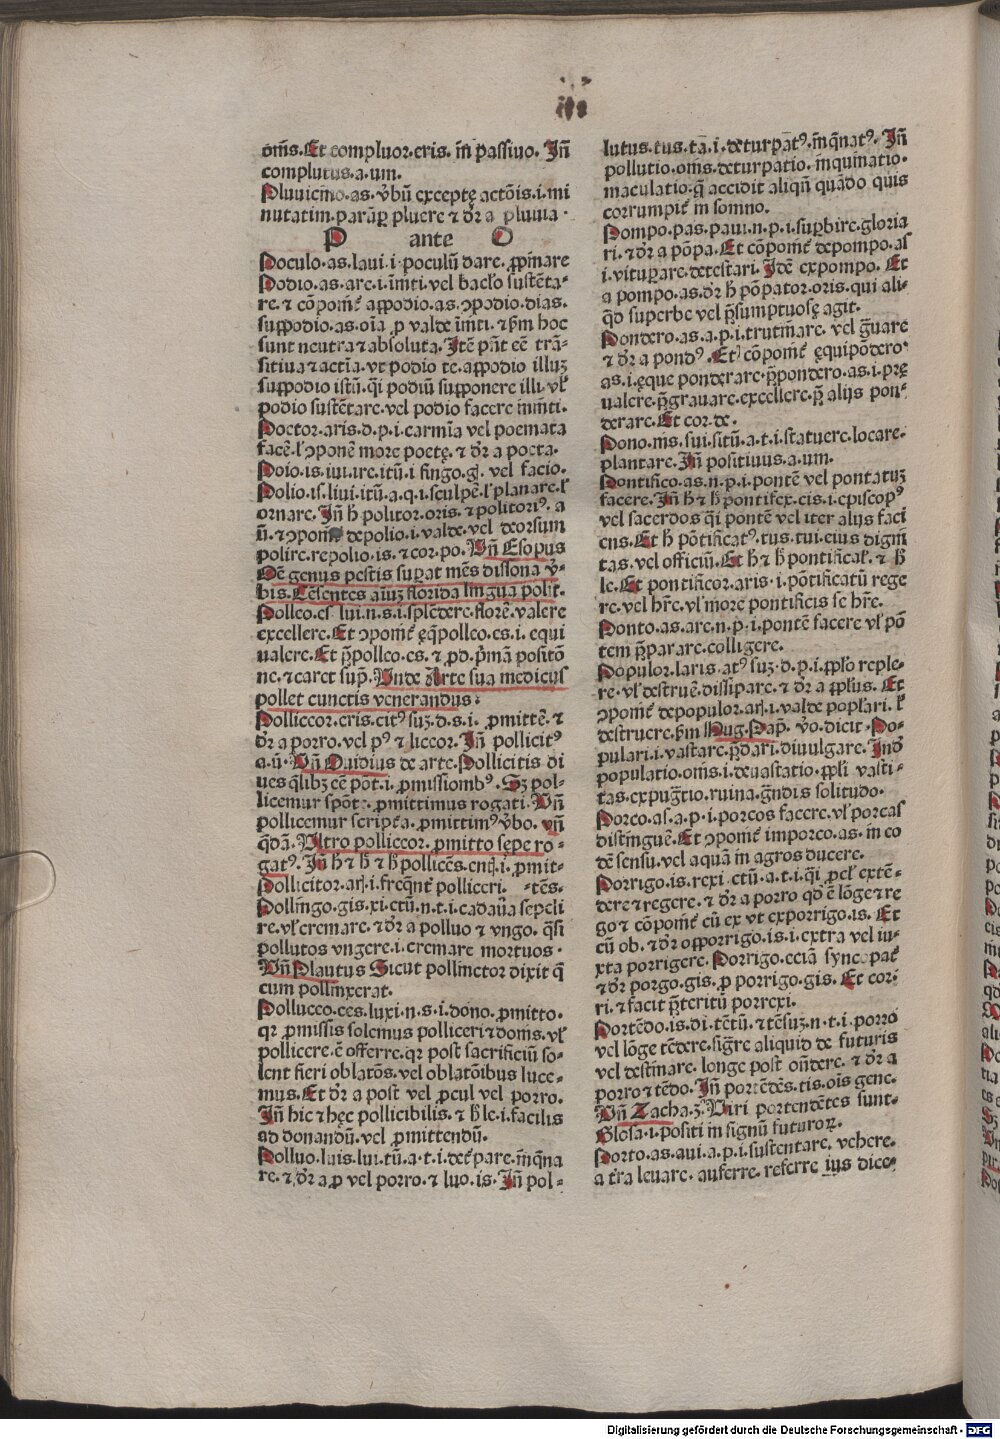 om̄s. Et compluor. eris. in̄ passiuo. Jn̄
complutus. a. um.
Pluuicino. as. v̓bū exceptę actōis. i. mi
nutatim. paꝝꝑ pluere ⁊ dr̄ a pluuia.
P ante O
Poculo. as. laui. i. poculū dare. ꝓpinare
Podio. as. are. i. inīti. vel baclo sustēta⸗
re. ⁊ cōpom̄t appodio. as. ↄpodio. dias.
suppodio. as. oīa ꝓ valde īniti. ⁊ ẜm hoc
sunt neutra ⁊ absoluta. Jtē pn̄t eē trā⸗
sitiua ⁊ actīa. vt podio te. appodio illuꝫ
suppodio istū. q̄i podiū supponere illi. vl̓
podio sustētare. vel podio facere inniti.
Poetor. aris. d. p. i. carmīa vel poemata
facē. l̓ ↄponē more poetę. ⁊ dr̄ a poeta.
Poio. is. iui. ire. itū. i fingo. gͣ. vel facio.
Polio. is. liui. itū. a. q. i. sculpē. l̓ planare. l̓
ornare. Jn̄ h̄ politor. oris. ⁊ politoriꝰ. a
ū. ⁊ ↄpom̄t depolio. i. valde. vel deorsum
polire. repolio. is. ⁊ cor. po. Vn̄ Esopus
Oē genus pestis suꝑat mēs dissona v̓⸗
bis. Cēsentes aīuꝫ florida lingua polit.
Polleo. es. lui. n. s. i. splēdere. florē. valere
excellere. Et ↄpom̄t eq̄polleo. es. i. equi
ualere. Et p̄polleo. es. ⁊ ꝓd. p̄mā positō
ne. ⁊ caret sup̄. Vnde Arte sua medicus
pollet cunctis venerandus.
Polliceor. eris. citꝰ suꝫ. d. s. i. ꝓmittē. ⁊
dr̄ a porro. vel pꝰ ⁊ liceor. Jn̄ pollicitꝰ
a. ū. Vn̄ Ouidius de arte. Pollicitis di
ues q̄libꝫ eē pōt. i. ꝓmissiōibꝰ. Sꝫ pol⸗
licemur spōte. ꝓmittimus rogati. Vn̄
pollicemur scripta. ꝓmittimꝰ v̓bo. vn̄
q̄dā. Vltro polliceor. ꝓmitto sepe ro⸗
gatꝰ. Jn̄ h̄ ⁊ h̄ ⁊ h̄ pollicēs. enq̄. i. ꝓmit⸗
Pollicitor. arꝭ. i. freqn̄t polliceri. ⸗tēs.
Pollingo. gis. xi. ctū. n. t. i. cadau̓a sepeli
re. vl̓ cremare. ⁊ dr̄ a polluo ⁊ vngo. q̄si
pollutos vngere. i. cremare mortuos.
Vn̄ Plautus Sicut pollinctor dixit q̄
eum pollinxerat.
Polluceo. ces. luxi. n. s. i. dono. ꝓmitto.
qꝛ ꝓmissis solemus polliceri ⁊ donis. vl̓
pollicere. ē offerre. qꝛ post sacrificiū so⸗
lent fieri oblatōs. vel oblatōibus luce⸗
mus. Et dr̄ a post vel ꝓcul vel porro.
Jn̄ hic ⁊ hęc pollicibilis. ⁊ h̄ le. i. facilis
ad donandū. vel ꝓmittendū.
Polluo. luis. lui. tū. a. t. i. det̓pare. inq̄na
re. ⁊ dr̄ a ꝓ vel porro. ⁊ luo. is. Jn̄ pol⸗
lutus. tus. ta. i. deturpatꝰ. inq̄natꝰ. Jn̄
pollutio. om̄s. deturpatio. inquinatio.
maculatio. q̄ accidit aliqn̄ quādo quis
corrumpit̓ in somno.
Pompo. pas. paui. n. p. i. suꝑbire. gloria
ri. ⁊ dr̄ a pōpa. Et cōpom̄t depompo. as
i. vituꝑare. detestari. Jdē expompo. Et
a pompo. as. dr̄ h̄ pōpator. oris. qui ali⸗
qd̓ superbe vel p̄sumptuosę agit.
Pondero. as. a. p. i. trutinare. vel g̓uare
⁊ dr̄ a pondꝰ. Et cōpom̄t ęquipōdero
as. i. ęque ponderare. p̄pondero. as. i. prę
ualere. p̄grauare. excellere. p̄ alijs pon⸗
derare. Et cor. de.
Pono. nis. sui. situ. a. t. i. statuere. locare.
plantare. Jn̄ positiuus. a. um.
Pontifico. as. n. p. i. pontē vel pontatuꝫ
facere. Jn̄ h̄ ⁊ h̄ pontifex. cis. i. episcopꝰ
vel sacerdos q̄i pontē vel iter alijs faci
ens. Et h̄ pōtificatꝰ. tus. tui. eius digni
tas. vel officiū. Et h̄ ⁊ h̄ pontifical̓. ⁊ h̄
le. Et pontificor. aris. i. pōtificatū rege
re. vel hr̄e. vl̓ more pontificis se hr̄e.
Ponto. as. are. n. p. i. pontē facere vl̓ pō
tem p̄parare. colligere.
Populor. laris. atꝰ suꝫ. d. p. i. ꝓplo reple⸗
re. vl̓ destruē. dissipare. ⁊ dr̄ a ꝓplus. Et
ↄpom̄t depopulor. arꝭ. i. valde poplari. l̓
destruere. ẜm Hug. Pap. v̓o. dicit. Po⸗
pulari. i. vastare. p̄dari. diuulgare. Jnd̓
populatio. om̄s. i. deuastatio. ꝓpli vasti⸗
tas. expug̓tio. ruina. g̓ndis solitudo.
Porco. as. a. p. i. porcos facere. vl̓ porcas
distinguē. Et ↄpom̄t imporco. as. in eo
dē sensu. vel aquā in agros ducere.
Porrigo. is. rexi. ctū. a. t. i. q̄i ꝓcl̓ extē⸗
dere ⁊ regere. ⁊ dr̄ a porro qd̓ ē lōge ⁊ re
go ⁊ cōpom̄t cū ex vt exporrigo. is. Et
cū ob. ⁊ dr̄ opporrigo. is. i. extra vel iu⸗
xta porrigere. Porrigo. eciā syncopat̓
⁊ dr̄ porgo. gis. ꝓ porrigo. gis. Et cori⸗
ri. ⁊ facit p̄teritū porrexi.
Portēdo. is. di. tētū. ⁊ tēsuꝫ. n. t. i. porro
vel lōge tēdere. sig̓re aliquid de futuris
vel destinare. longe post on̄dere. ⁊ dr̄ a
porro ⁊ tēdo. Jn̄ portēdēs. tis. ois gene.
Vn̄ Zacha. 3. Viri portendētes sunt.
Glosa. i. positi in signū futuroꝝ.
Porto. as. aui. a. p. i. sustentare. vehere.
a tr̄a leuare. auferre. referre ius dice⸗
Digitalisierung gefördert durch die Deutsche Forschungsgemeinschaft - DFG